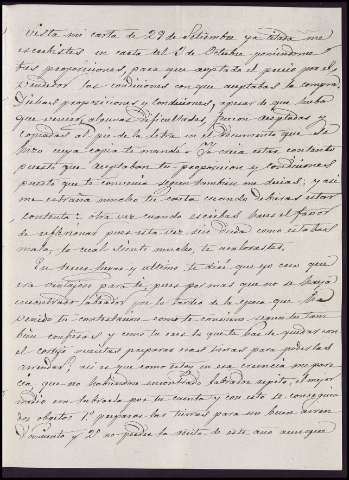 Vista mi carta de 29 de Setiembre ya ahora me
escribistes en carta del 2 de Octubre poniendome
tres proposiciones, para que aceptado el precio por el
Vendedor las condiciones con que aceptabas la compra.
Dichas proposiciones y condiciones, apesar de que hubo
que vencer algunas dificultades, fueron aceptadas y
copiadas al pie de la letra en el documento que se
hizo cuya copia te mande. Yo creia estar contento
puesto que aceptaban tu proposicion y condiciones
puesto que te convenia segun tambien me decias; y asi
me estraña mucho tu carta cuando deberias estar
contento: otra vez cuando escribas haras el favor
de refleсsionar pues esta vez sin duda como estabas
malo, lo cual siento mucho, te acaloraste.
En tercer lugar y ultimo te diré que yo creo que
era ventajoso para ti, pues por mas que no se haya
encontrado labrador por lo tardio de la epoca que ha
venido tu contestacion como te convino segun tu tam
bien confiesas y como tu ves te que te has de quedar con
el cortijo necesitas preparar esas tierras para poderlas
arrendar, asi es que como estoy en esa creencia me pare
cia, que no habiendose encontrado labrador repito, el mejor
medio era labrarlo por tu cuenta y con esto se conseguian
dos objetos 1º preparar las tierras para un buen arren
damiento y 2º no perder la renta de este año aunque